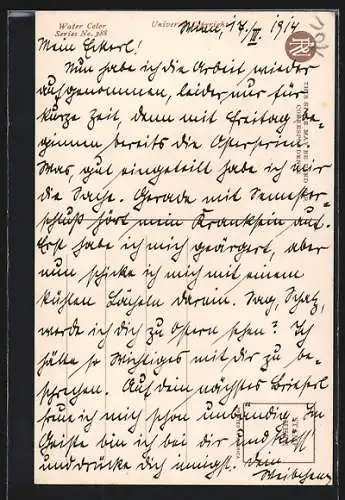 Water Color
Series No. 388
Wien, 17./III. 1914
Mein Eckerl!
Nun habe ich die Arbeit wieder
aufgenommen, leider nur für
kurze Zeit, denn mit Freitag be-
ginnen bereits die Osterferien.
Was, gut eingeteilt habe ich mir
die Sache. Gerade mit Semester-
schluß hört mein Kranksein auf.
Erst habe ich mich geärgert, aber
nun schicke ich mich mit einem
kühlen Lächeln darein. Sag, Schatz,
werde ich dich zu Ostern sehen? Ich
hätte so Wichtiges mit dir zu be-
sprechen. Auf dein nächstes Brieferl
freue ich mich schon unbändig. Im
Geiste bin ich bei dir und küss'
und drücke dich innigst. Dein
Weibchen